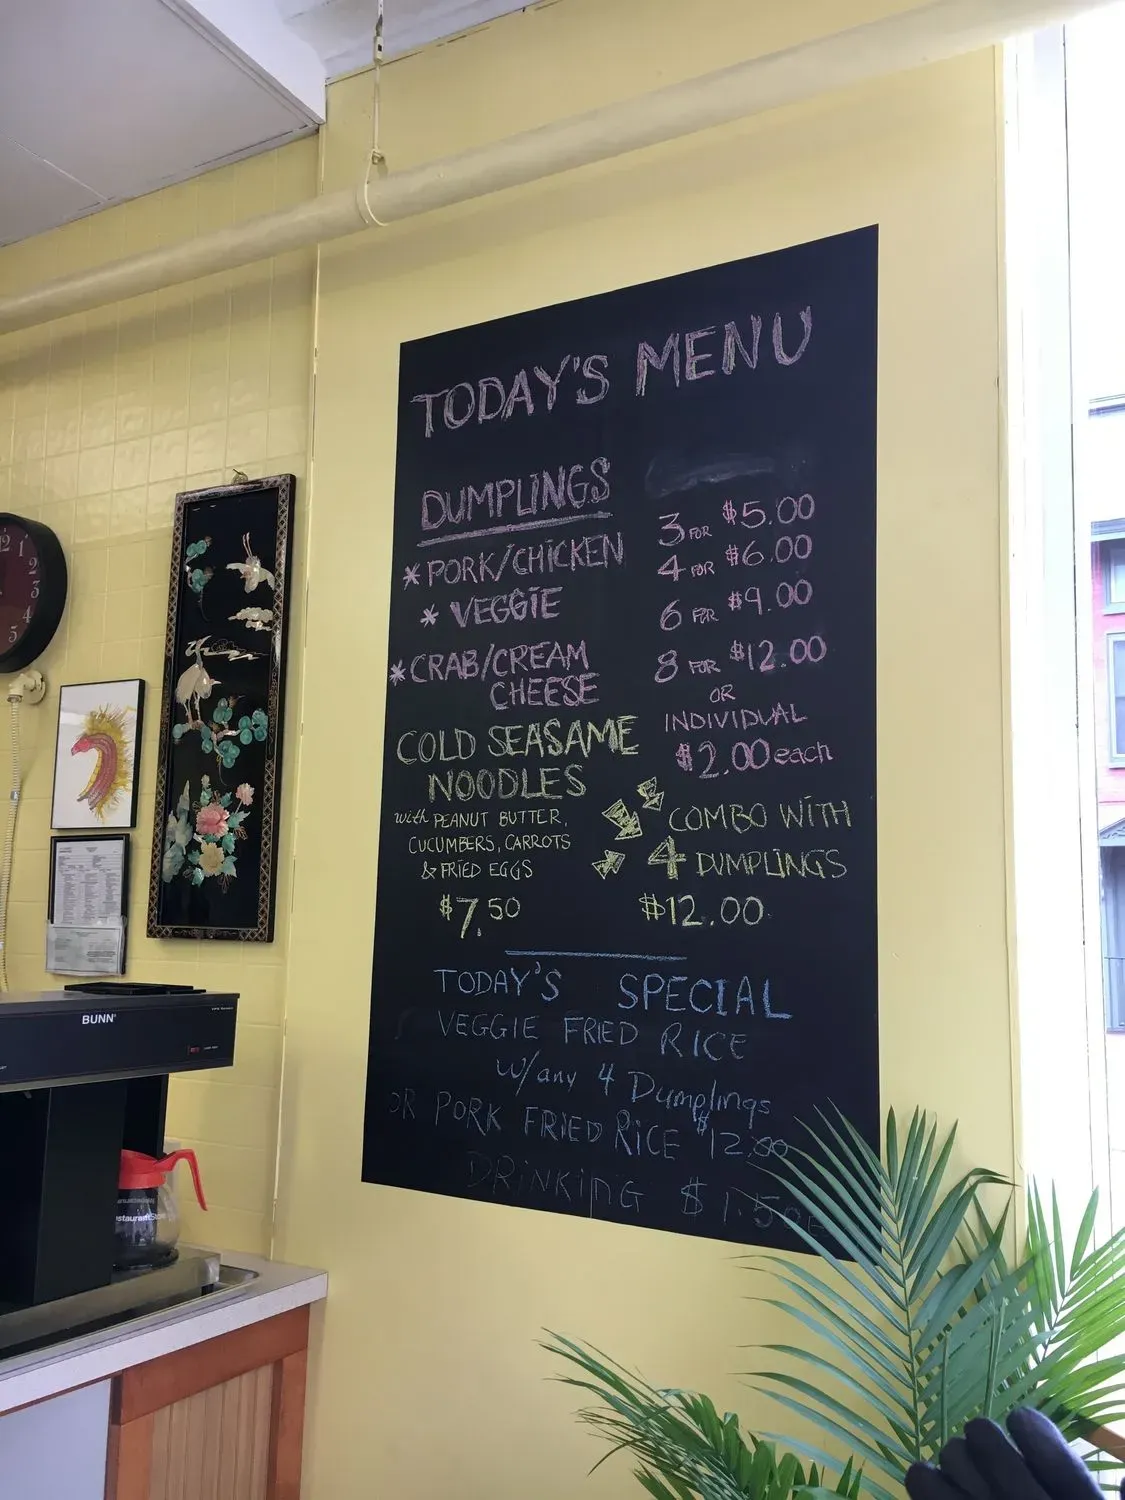 TODAY'S MENU
DUMPLINGS
* PORK/CHICKEN
* VEGGIE
* CRAB/CREAM
CHEESE
3 FOR $5.00
4 FOR $6.00
6 FOR $9.00
8 FOR $12.00
OR
INDIVIDUAL
$2.00 each
COLD SEASAME
NOODLES
with PEANUT BUTTER,
CUCUMBERS, CARROTS
& FRIED EGGS
$7.50
COMBO WITH
4 DUMPLINGS
$12.00
TODAY'S SPECIAL
VEGGIE FRIED RICE
w/any 4 Dumplings
OR PORK FRIED RICE $12.00
DRINKING $1.50
BUNN
12
1
2
3
4
5